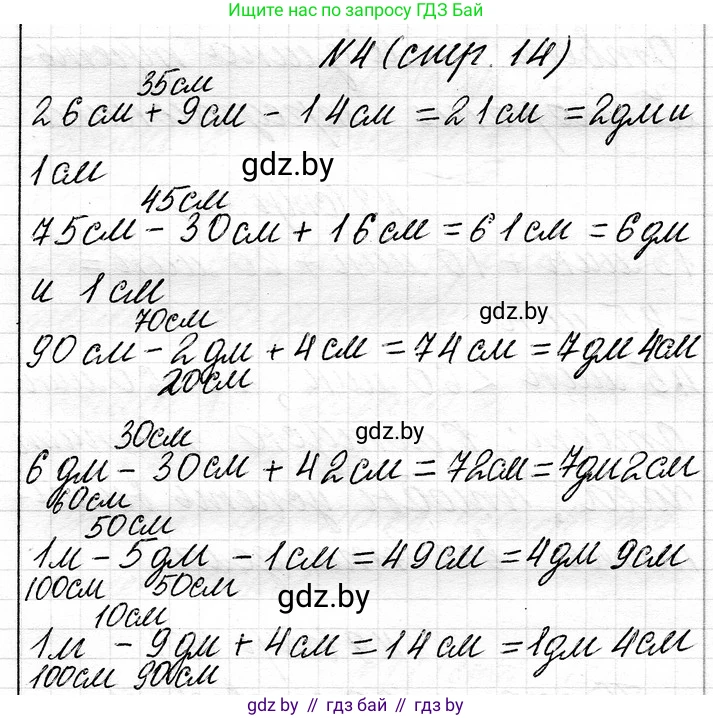 Ищите нас по запросу ГДЗ Бай
N4 (стр. 14)
35см
26см + 9см - 14см = 21см = 2дм и
1см
gdz.by
45см
75см - 30см + 16см = 61см = 6дм
и 1см
gdz.by
70см
90см - 2дм + 4см = 74см = 7дм 4см
20см
gdz.by
30см
6дм - 30см + 42см = 72см = 7дм 2см
60см
50см
1м - 5дм - 1см = 49см = 4дм 9см
100см 50см
gdz.by
10см
1м - 9дм + 4см = 14см = 1дм 4см
100см 90см
gdz.by // гдз бай // gdz.by